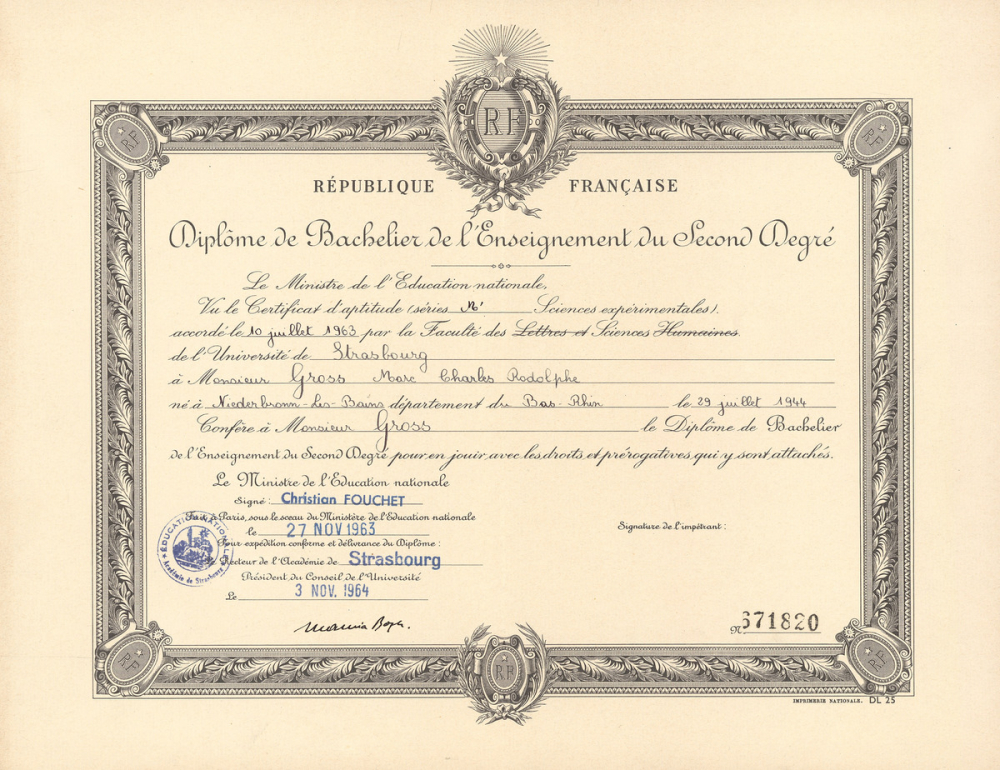 RF
RF
RF
RÉPUBLIQUE FRANÇAISE
Diplôme de Bachelier de l'Enseignement du Second Degré
Le Ministre de l'Education nationale,
Vu le Certificat d'aptitude (séries M' Sciences expérimentales),
accordé le 10 juillet 1963 par la Faculté des Lettres et Sciences Humaines
de l'Université de Strasbourg
à Monsieur Gross Marc Charles Rodolphe
né à Niederbronn-Les-Bains département du Bas-Rhin le 29 juillet 1944
Confère à Monsieur Gross le Diplôme de Bachelier
de l'Enseignement du Second Degré, pour en jouir avec les droits et prérogatives qui y sont attachés.
Le Ministre de l'Education nationale
Signé : Christian FOUCHET
Fait à Paris, sous le sceau du Ministère de l'Education nationale
le 27 NOV 1963
Pour expédition conforme et délivrance du Diplôme :
Signature de l'impétrant :
Le Recteur de l'Académie de Strasbourg
Président du Conseil de l'Université
Le 3 NOV. 1964
ÉDUCATION NATIONALE
Académie de Strasbourg
No 671820
RF
RF
RF
IMPRIMERIE NATIONALE. DL 25